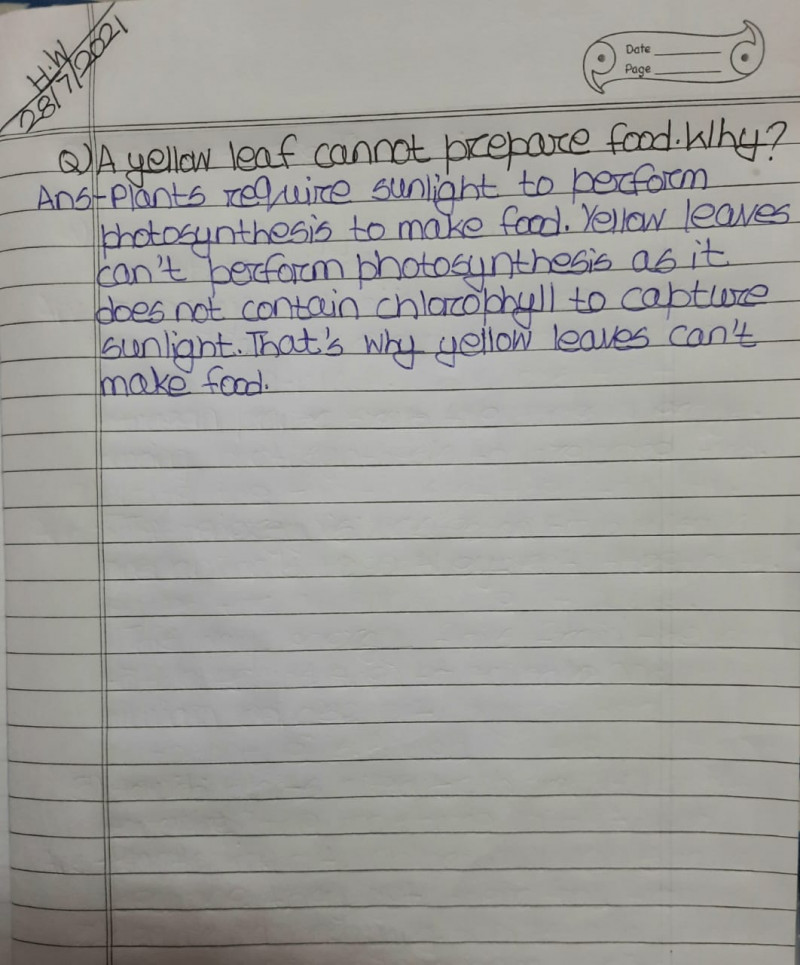 H.W
28/7/2021
Date
Page
Q) A yellow leaf cannot prepare food. Why?
Ans- Plants require sunlight to perform
photosynthesis to make food. Yellow leaves
can't perform photosynthesis as it
does not contain chlorophyll to capture
sunlight. That's why yellow leaves can't
make food.